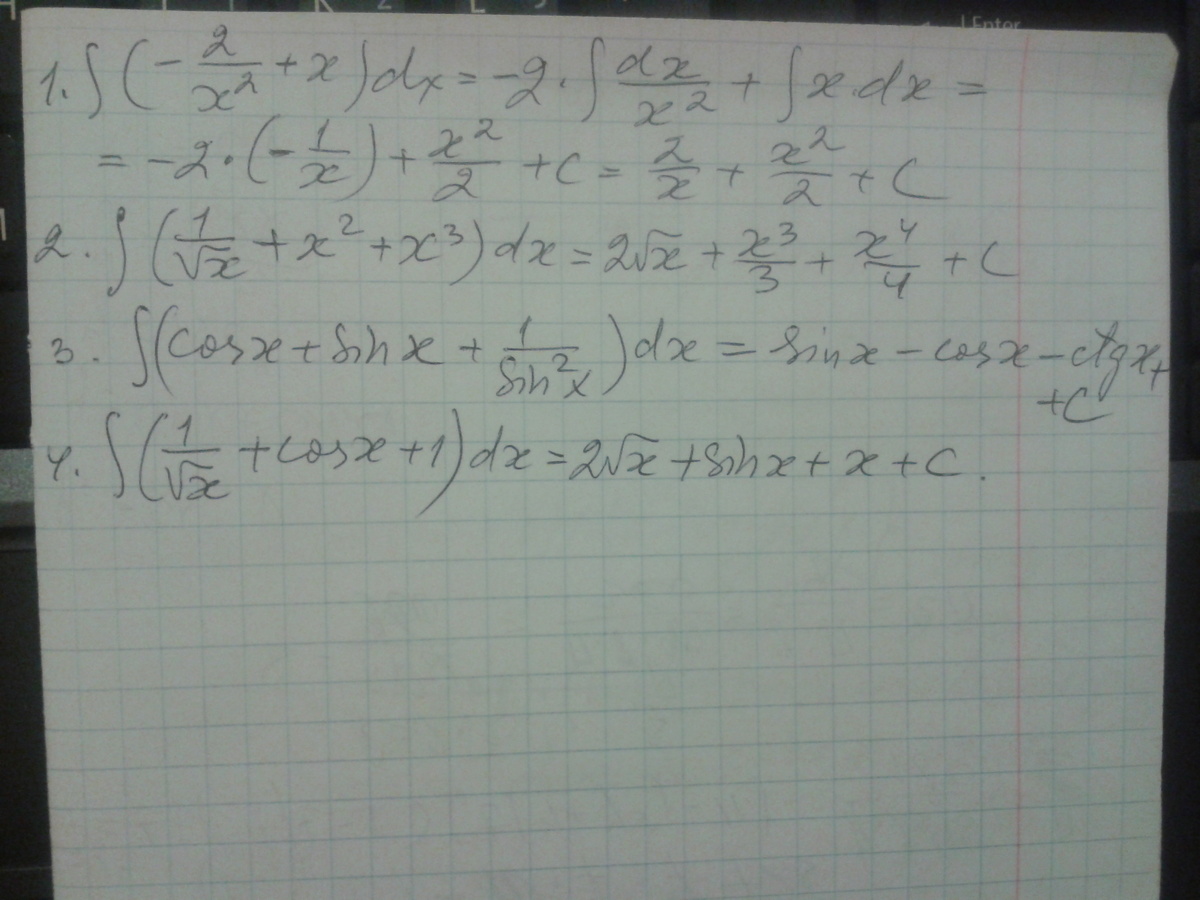 Enter
1. ∫ (-2/x² + x) dx = -2 · ∫ dx/x² + ∫ x dx =
= -2 · (-1/x) + x²/2 + C = 2/x + x²/2 + C
2. ∫ (1/√x + x² + x³) dx = 2√x + x³/3 + x⁴/4 + C
3. ∫ (cos x + sin x + 1/sin²x) dx = sin x - cos x - ctg x +
+ C
4. ∫ (1/√x + cos x + 1) dx = 2√x + sin x + x + C.